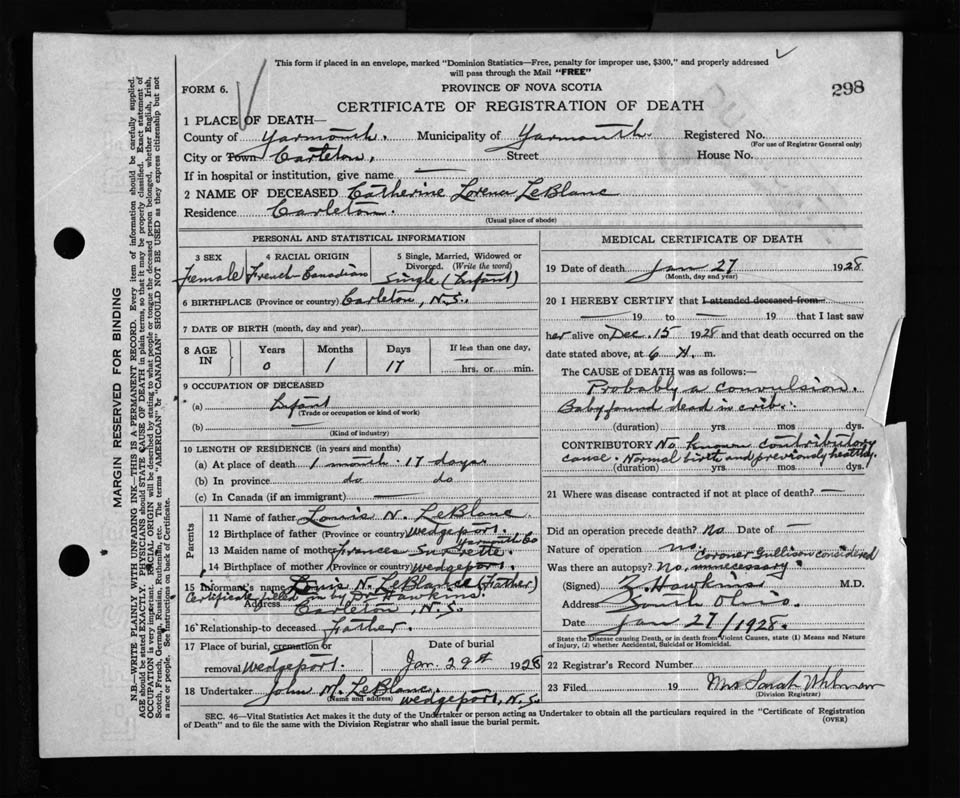 This form if placed in an envelope, marked "Dominion Statistics—Free, penalty for improper use, $300," and properly addressed
will pass through the Mail "FREE"
FORM 6.
PROVINCE OF NOVA SCOTIA
298
CERTIFICATE OF REGISTRATION OF DEATH
1 PLACE OF DEATH—
County of Yarmouth. Municipality of Yarmouth. Registered No.
(For use of Registrar General only)
City or Town Carleton, Street House No.
If in hospital or institution, give name —
2 NAME OF DECEASED Catherine Lorena LeBlanc
Residence Carleton.
(Usual place of abode)
PERSONAL AND STATISTICAL INFORMATION
3 SEX 4 RACIAL ORIGIN 5 Single, Married, Widowed or
Divorced. (Write the word)
Female French-Canadian Single (Infant)
6 BIRTHPLACE (Province or country) Carleton, N.S.
7 DATE OF BIRTH (month, day and year)
8 AGE IN Years Months Days If less than one day,
0 1 17 hrs. or min.
9 OCCUPATION OF DECEASED
(a) Infant
(Trade or occupation or kind of work)
(b) —
(Kind of industry)
10 LENGTH OF RESIDENCE (in years and months)
(a) At place of death 1 month. 17 days
(b) In province do do
(c) In Canada (if an immigrant) —
Parents
11 Name of father Louis N. LeBlanc
12 Birthplace of father (Province or country) Wedgeport.
Yarmouth Co
13 Maiden name of mother Frances
14 Birthplace of mother (Province or country) Wedgeport.
15 Informant's name Louis N. LeBlanc (Father)
Certificate filled in by Dr Hawkins.
Address Carleton, N.S.
16 Relationship to deceased Father.
17 Place of burial, cremation or Date of burial
removal Wedgeport. Jan. 29th 1928
18 Undertaker John M. LeBlanc.
(Name and address) Wedgeport, N.S.
MEDICAL CERTIFICATE OF DEATH
19 Date of death Jan 27 1928
(Month, day and year)
20 I HEREBY CERTIFY that I attended deceased from
— 19 to — 19 that I last saw
her alive on Dec. 15 1928 and that death occurred on the
date stated above, at 6 A. m.
The CAUSE of DEATH was as follows:
Probably a convulsion.
Baby found dead in crib.
(duration) yrs. mos. dys.
CONTRIBUTORY No known contributory
cause. Normal birth and previously healthy.
(duration) yrs. mos. dys.
21 Where was disease contracted if not at place of death? —
Did an operation precede death? no Date of —
Nature of operation no
Coroner Gullison considered
Was there an autopsy? No, unnecessary.
(Signed) Z. Hawkins M.D.
Address South Ohio.
Date Jan 27/1928.
State the Disease causing Death, or in death from Violent Causes, state (1) Means and Nature
of Injury, (2) whether Accidental, Suicidal or Homicidal.
22 Registrar's Record Number
23 Filed 19 Mrs Sarah
(Division Registrar)
SEC. 46—Vital Statistics Act makes it the duty of the Undertaker or person acting as Undertaker to obtain all the particulars required in the "Certificate of Registration
of Death" and to file the same with the Division Registrar who shall issue the burial permit.
(OVER)
MARGIN RESERVED FOR BINDING
N.B.—WRITE PLAINLY WITH UNFADING INK—THIS IS A PERMANENT RECORD. Every item of information should be carefully supplied.
AGE should be stated EXACTLY. PHYSICIANS should STATE CAUSE OF DEATH in plain terms, so that it may be properly classified. Exact statement of
OCCUPATION is very important. RACIAL ORIGIN will be described by stating to what people or tongue the deceased person belonged, whether English, Irish,
Scotch, French, German, Russian, Ruthenian, etc. The terms "AMERICAN" or "CANADIAN" SHOULD NOT BE USED as they express citizenship but not
a race or people. See instruction on back of Certificate.